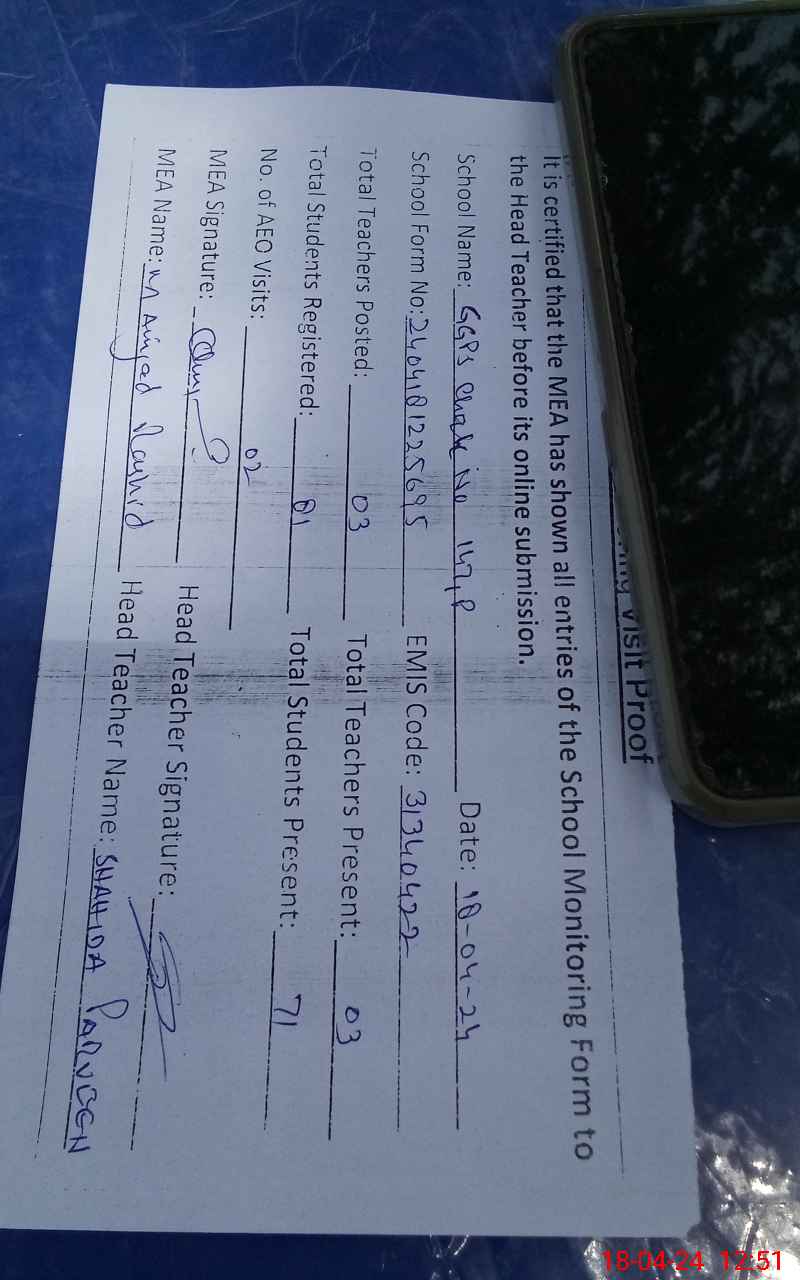 Visit Proof
It is certified that the MEA has shown all entries of the School Monitoring Form to
the Head Teacher before its online submission.
School Name: GGPS Chak No 147,P Date: 18-04-24
School Form No: 2404181225695 EMIS Code: 31340422
Total Teachers Posted: 03 Total Teachers Present: 03
Total Students Registered: 81 Total Students Present: 71
No. of AEO Visits: 02
MEA Signature: Head Teacher Signature:
MEA Name: M Amjad Rashid Head Teacher Name: SHAHIDA PARVEEN
18-04-24 12:51